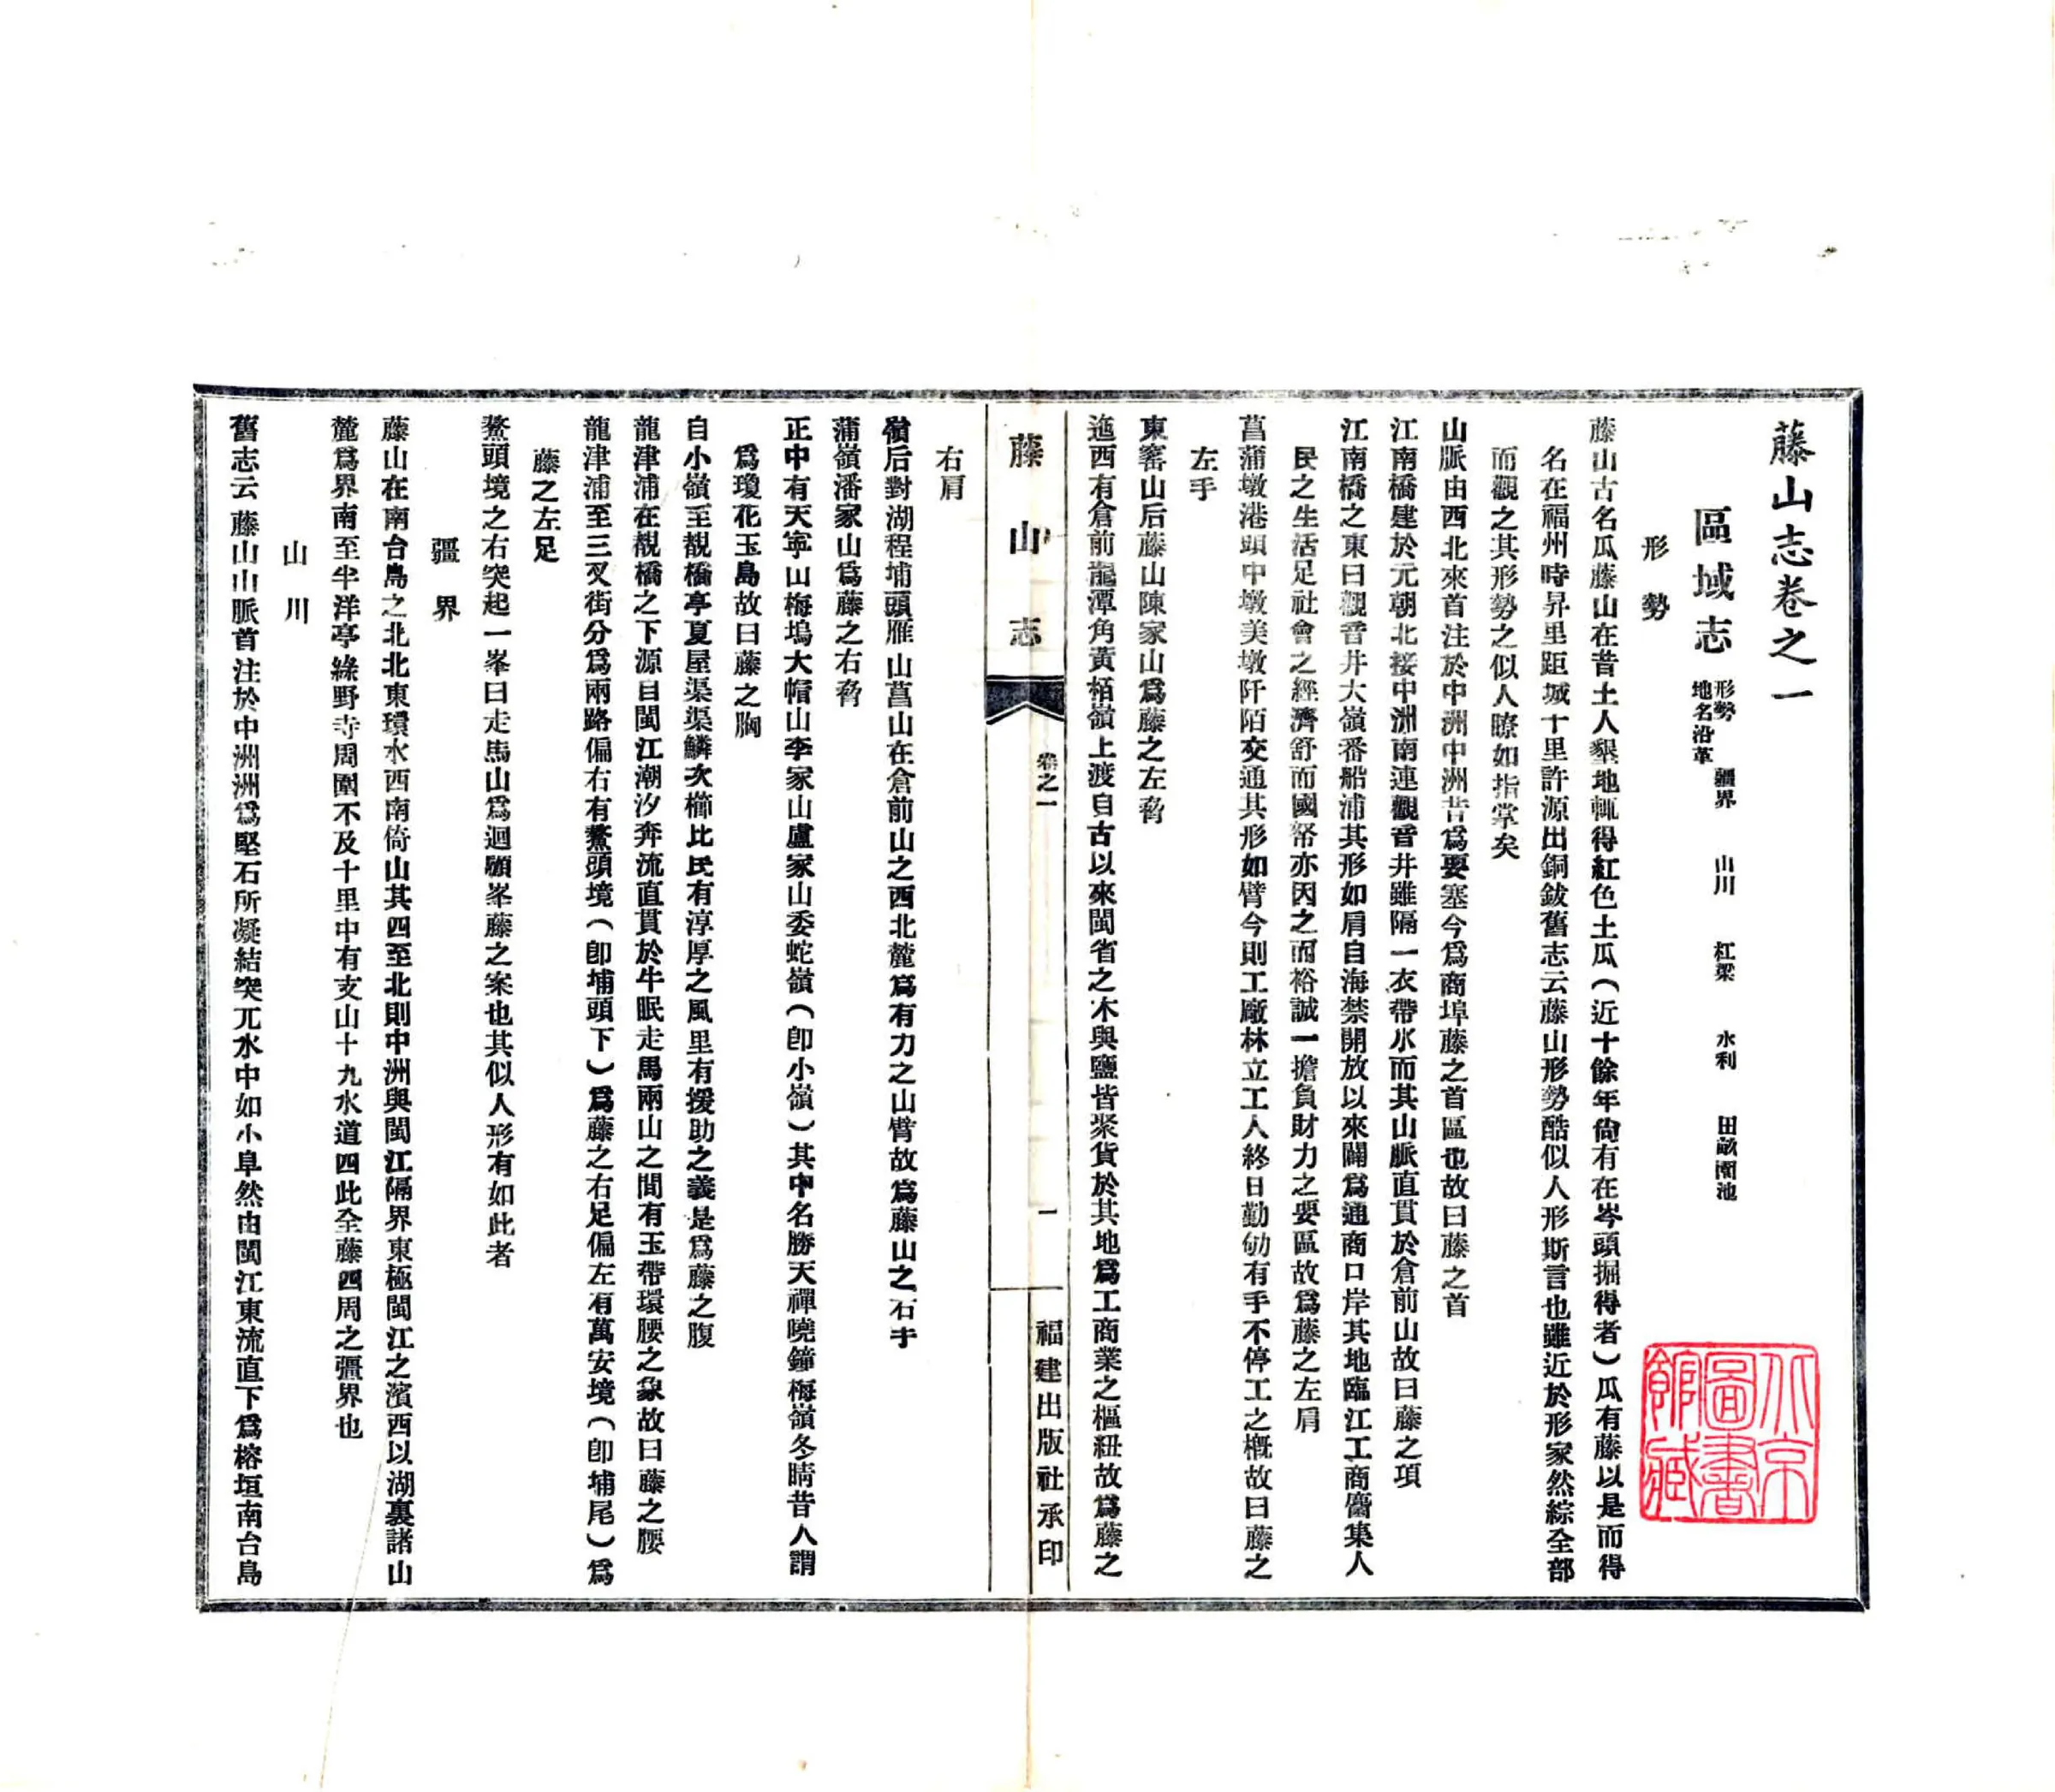 藤山志卷之一
區域志 形勢 疆界 山川 杠梁 水利 田畝園池
地名沿革
形勢
藤山古名瓜藤山在昔土人墾地輒得紅色土瓜(近十餘年尙有在岑頭掘得者)瓜有藤以是而得
名在福州時昇里距城十里許源出銅鈸舊志云藤山形勢酷似人形斯言也雖近於形家然綜全部
而觀之其形勢之似人瞭如指掌矣
山脈由西北來首注於中洲中洲昔爲要塞今爲商埠藤之首區也故曰藤之首
江南橋建於元朝北接中洲南連觀音井雖隔一衣帶水而其山脈直貫於倉前山故曰藤之項
江南橋之東曰觀音井大嶺番船浦其形如肩自海禁開放以來闢爲通商口岸其地臨江工商麕集人
民之生活足社會之經濟舒而國帑亦因之而裕誠一擔負財力之要區故爲藤之左肩
菖蒲墩港頭中墩美墩阡陌交通其形如臂今則工廠林立工人終日勤劬有手不停工之概故曰藤之
左手
東窰山后藤山陳家山爲藤之左脅
迤西有倉前龍潭角黃栢嶺上渡自古以來閩省之木與鹽皆聚貨於其地爲工商業之樞紐故爲藤之
藤山志
卷之一
一
福建出版社承印
右肩
嶺后對湖程埔頭雁山菖山在倉前山之西北麓爲有力之山臂故爲藤山之右手
蒲嶺潘家山爲藤之右脅
正中有天寧山梅塢大帽山李家山盧家山委蛇嶺(卽小嶺)其中名勝天禪曉鐘梅嶺冬晴昔人謂
爲瓊花玉島故曰藤之胸
自小嶺至靚橋亭夏屋渠渠鱗次櫛比民有淳厚之風里有援助之義是爲藤之腹
龍津浦在靚橋之下源自閩江潮汐奔流直貫於牛眠走馬兩山之間有玉帶環腰之象故曰藤之腰
龍津浦至三叉街分爲兩路偏右有鰲頭境(卽埔頭下)爲藤之右足偏左有萬安境(卽埔尾)爲
藤之左足
鰲頭境之右突起一峯曰走馬山爲迴顧峯藤之案也其似人形有如此者
疆界
藤山在南台島之北北東環水西南倚山其四至北則中洲與閩江隔界東極閩江之濱西以湖裏諸山
麓爲界南至半洋亭綠野寺周圍不及十里中有支山十九水道四此全藤四周之疆界也
山川
舊志云藤山山脈首注於中洲洲爲堅石所凝結突兀水中如小阜然由閩江東流直下爲榕垣南台島
北京圖書館藏